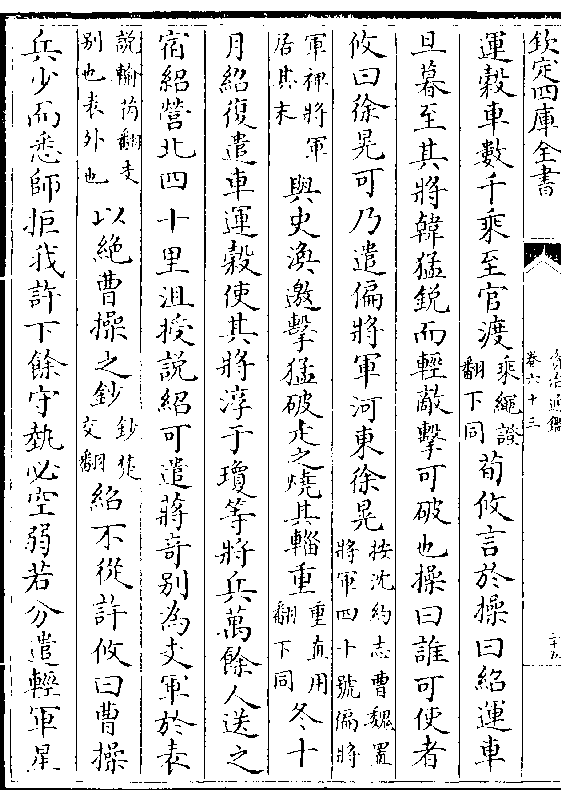 欽定四庫全書
卷六十三
運穀車數千乘至官渡乘繩證翻下同荀攸言於操曰紹運車
旦暮至其將韓猛銳而輕敵擊可破也操曰誰可使者
攸曰徐晃可乃遣偏將軍河東徐晃按沈約志曹魏置將軍四十號偏將
軍裨將軍居其末與史渙邀擊猛破走之燒其輜重重直用翻下同冬十
月紹復遣車運穀使其將淳于瓊等將兵萬餘人送之
宿紹營北四十里沮授說紹可遣蔣竒别為支軍於表
說輸芮翻支别也表外也以絶曹操之鈔鈔楚交翻紹不從許攸曰曹操
兵少而悉師拒我許下餘守埶必空弱若分遣輕軍星